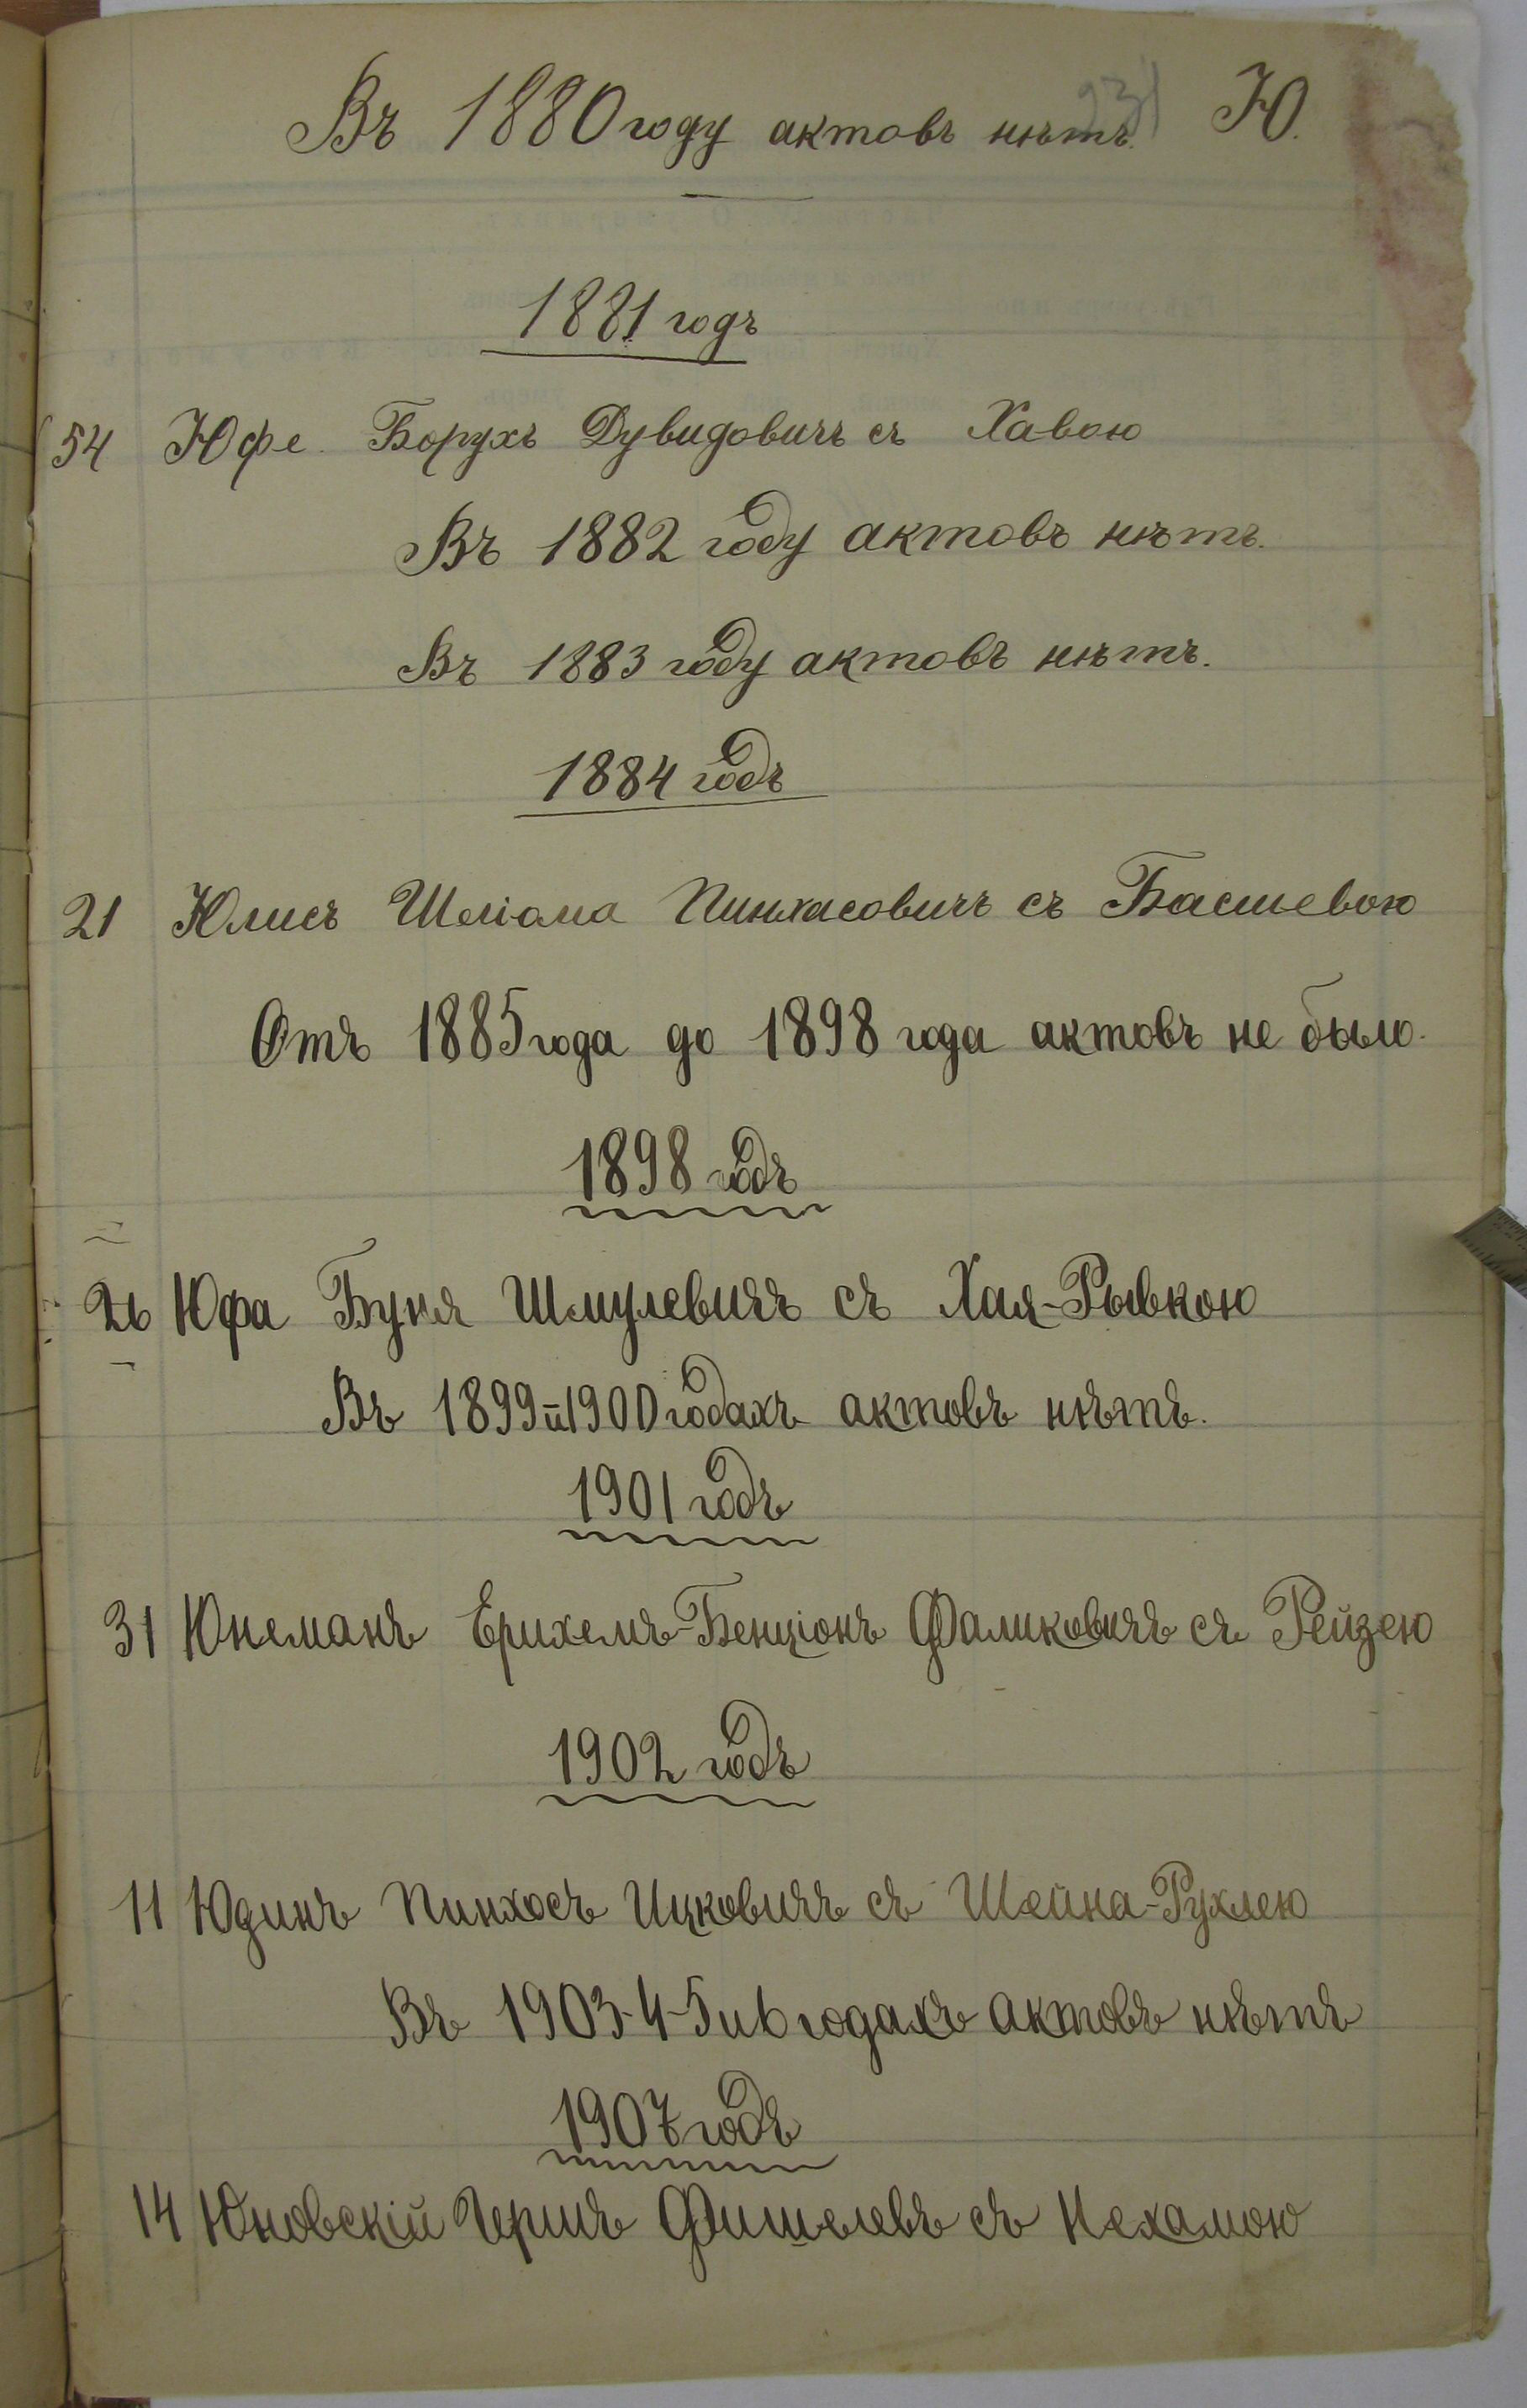 Въ 1880 году актовъ нѣтъ. Ю.
1881 годъ
54 Юфе Борухъ Дувидовичъ съ Хавою
Въ 1882 году актовъ нѣтъ.
Въ 1883 году актовъ нѣтъ.
1884 годъ
21 Юлисъ Шеліома Пинхасовичъ съ Басшевою
Отъ 1885 года до 1898 года актовъ не было.
1898 годъ
26 Юфа Буня Шмулевичъ съ Хая-Рывкою
Въ 1899 и 1900 годахъ актовъ нѣтъ.
1901 годъ
31 Юнеманъ Ерихемъ-Бенціонъ Фаликовичъ съ Рейзею
1902 годъ
11 Юдинъ Пинхосъ Ицковичъ съ Шейна-Рухлею
Въ 1903-4-5 и 6 годахъ актовъ нѣтъ
1907 годъ
14 Юновскій Гершъ Фишелевъ съ Нехамою